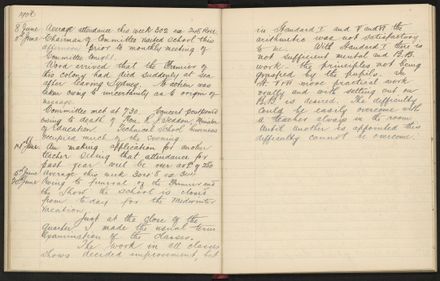 1906
8 June Average attendance this week 302
11th June Chairman of Committee visited school this
afternoon prior to monthly meeting of
Committee tonight.
Word arrived that the Premier of
this colony had died suddenly at sea
after leaving Sydney. No action was
taken owing to uncertainty as to origin of
message.
Committee met at 7.30
owing to death of Hon R J Seddon, Minister
of Education. Technical School business
occupied much of the evening.
14th June Am making application for another
teacher seeing that attendance for
past year will be over
15th June Average this week
20th June Owing to funeral of the Premier and
the Show the school is closed
from to-day for the Midwinter
Vacation.
Just at the close of the
Quarter I made the usual term
Examination of the classes.
The work in all classes
shows decided improvement, but
in Standard I and V and VI the
arithmetic was not satisfactory
to me. With Standard I there is
not sufficient mental and B.B.
work. The principles not being
grasped by the pupils. In
St V & VI more practical work
orally and with setting out on
B.B. is desired. The difficulty
could be easily overcome with
a teacher always in the room
Until another is appointed this
difficulty cannot be overcome.